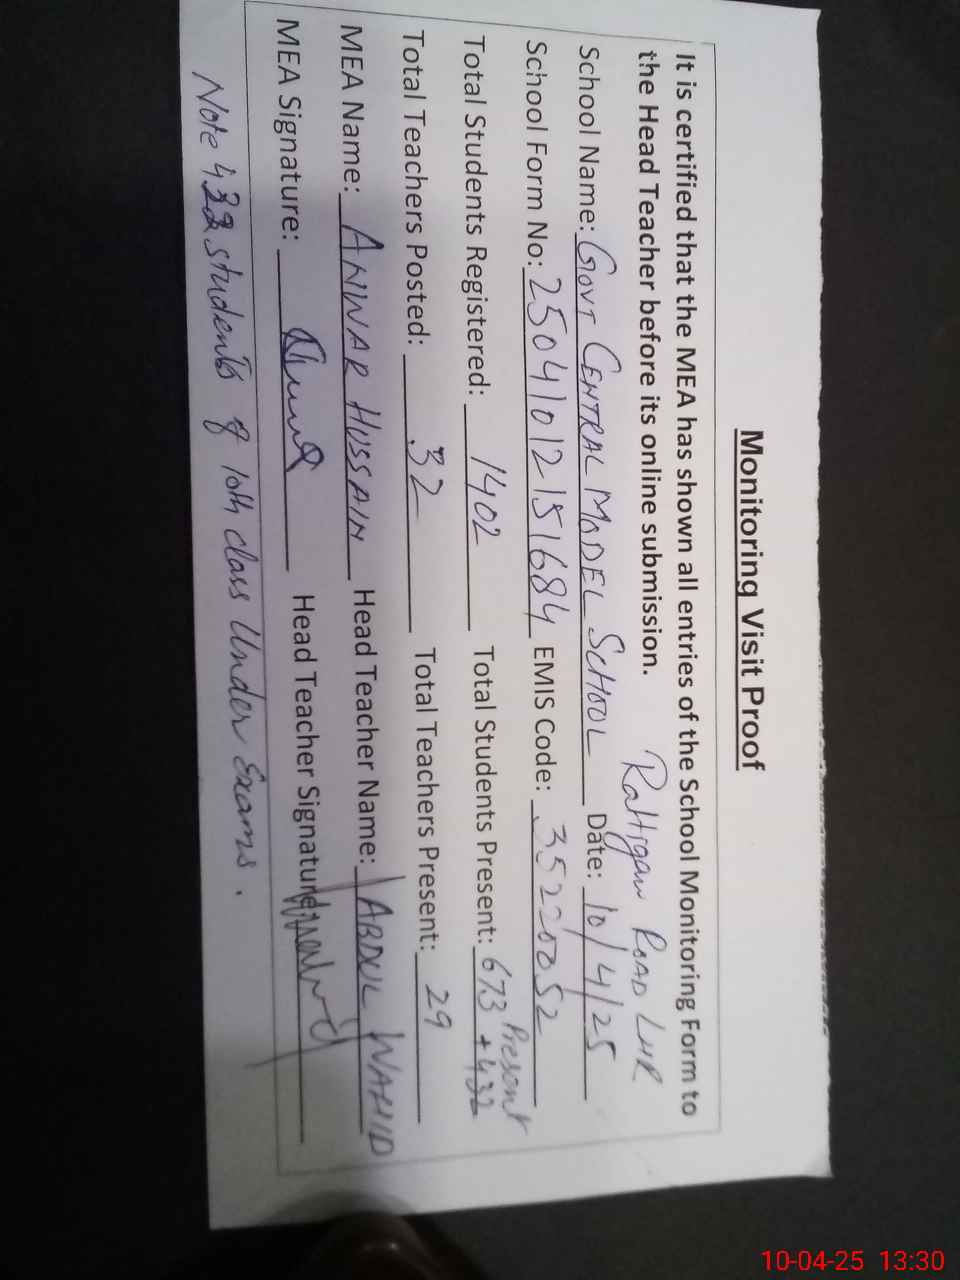 Monitoring Visit Proof
It is certified that the MEA has shown all entries of the School Monitoring Form to
the Head Teacher before its online submission.
Rattigan ROAD LHR
School Name: GOVT CENTRAL MODEL SCHOOL Date: 10/4/25
School Form No: 25041012151684 EMIS Code: 35220052
Total Students Registered: 1402 Total Students Present: 673 Present + 432
Total Teachers Posted: 32 Total Teachers Present: 29
MEA Name: ANWAR HUSSAIN Head Teacher Name: ABDUL WAHID
MEA Signature: Head Teacher Signature:
Note 432 students of 10th class Under Exams.
10-04-25 13:30